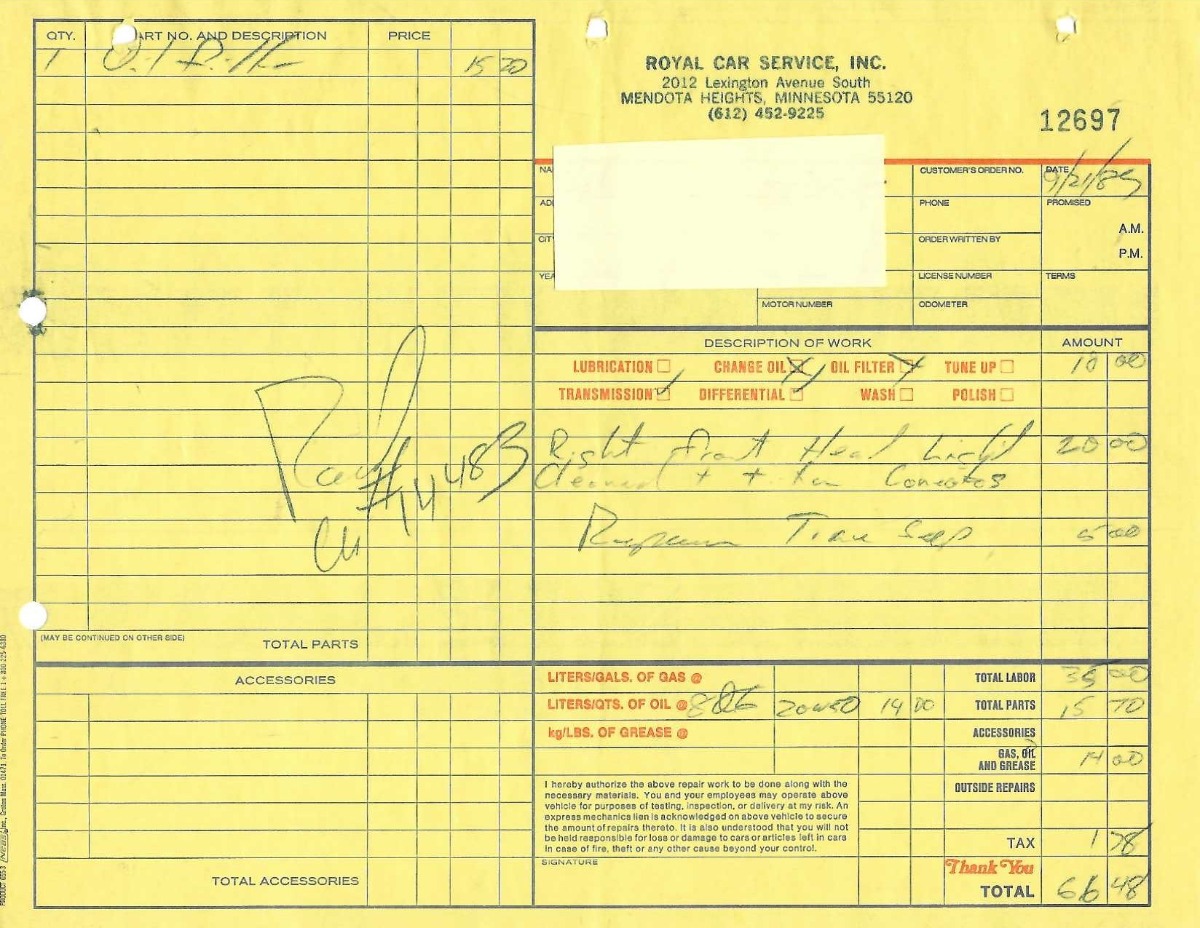 QTY. PART NO. AND DESCRIPTION PRICE
1 Oil Filter 15 70
ROYAL CAR SERVICE, INC.
2012 Lexington Avenue South
MENDOTA HEIGHTS, MINNESOTA 55120
(612) 452-9225
12697
NA CUSTOMER'S ORDER NO. DATE 9/21/85
AD PHONE PROMISED
CIT ORDER WRITTEN BY A.M.
P.M.
YEA LICENSE NUMBER TERMS
MOTOR NUMBER ODOMETER
DESCRIPTION OF WORK AMOUNT
LUBRICATION CHANGE OIL OIL FILTER TUNE UP 10 00
TRANSMISSION DIFFERENTIAL WASH POLISH
Right Front Head Light 20 00
Cleaned + +
Trans 5 00
Paid
#14483
(MAY BE CONTINUED ON OTHER SIDE) TOTAL PARTS
ACCESSORIES
TOTAL ACCESSORIES
LITERS/GALS. OF GAS @ TOTAL LABOR 35 00
LITERS/QTS. OF OIL @ 8 Qts 20W50 14 00 TOTAL PARTS 15 70
kg/LBS. OF GREASE @ ACCESSORIES
GAS, OIL
AND GREASE 14 00
OUTSIDE REPAIRS
I hereby authorize the above repair work to be done along with the
necessary materials. You and your employees may operate above
vehicle for purposes of testing, inspection, or delivery at my risk. An
express mechanics lien is acknowledged on above vehicle to secure
the amount of repairs thereto. It is also understood that you will not
be held responsible for loss or damage to cars or articles left in cars
in case of fire, theft or any other cause beyond your control.
SIGNATURE
TAX 1 78
Thank You
TOTAL 66 48